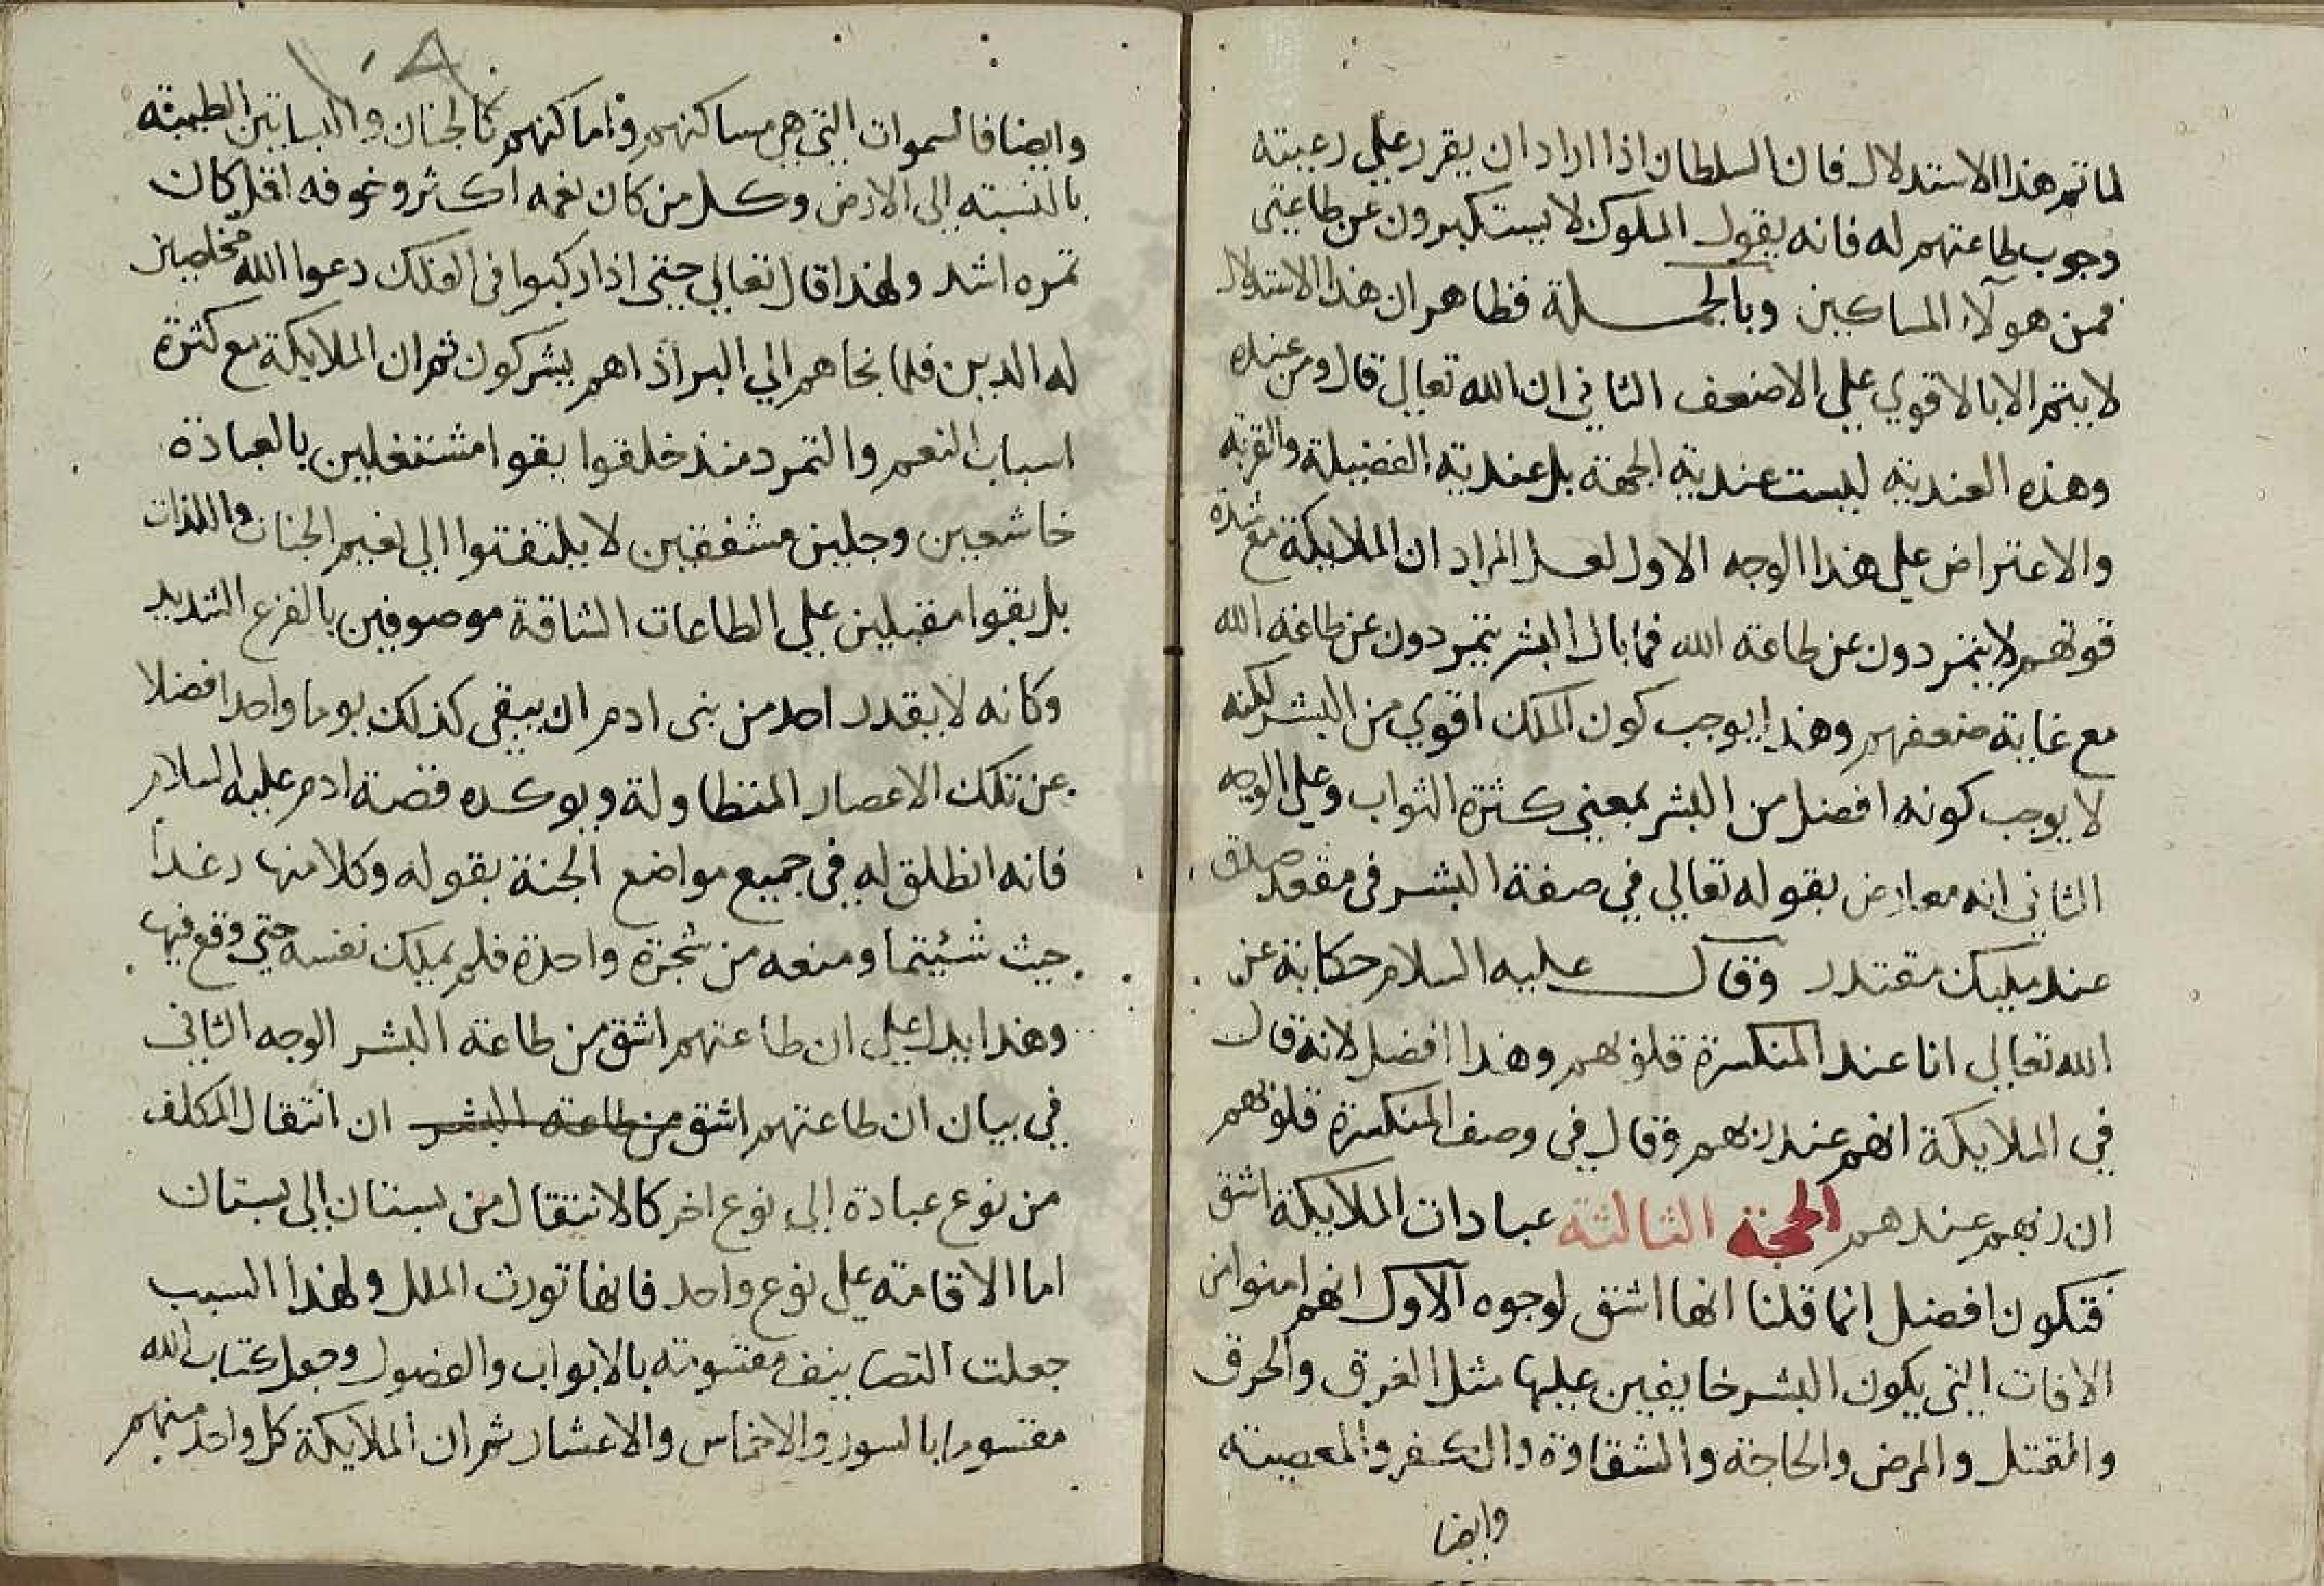 لما تم هذا الاستدلال فان السلطان اذا اراد ان يقرر علي رعيته
وجوب طاعتهم له فانه يقول الملوك لا يستكبرون عن طاعتي
فمن هولآء المساكين وبالجملة فظاهر ان هذا الاستدلال
لا يتم الا بالاقوي علي الاضعف الثاني ان الله تعالي قال ومن عنده
وهذه العندية ليست عندية الجهة بل عندية الفضيلة والقربة
والاعتراض علي هذا الوجه الاول لعل المراد ان الملايكة مع شدة
قوتهم لا يتمردون عن طاعة الله فما بال البشر يتمردون عن طاعة الله
مع غاية ضعفهم وهذا يوجب كون الملك اقوي من البشر لكنه
لا يوجب كونه افضل من البشر بمعني كثرة الثواب وعلي الوجه
الثاني انه معارض بقوله تعالي في صفة البشر في مقعد صدق
عند مليك مقتدر وقال عليه السلام حكاية عن
الله تعالي انا عند المنكسرة قلوبهم وهذا افضل لانه قال
في الملايكة انهم عند ربهم وقال في وصف المنكسرة قلوبهم
ان ربهم عندهم الحجة الثالثة عبادات الملايكة اشق
فتكون افضل انما قلنا انها اشق لوجوه الاول انهم امنوا من
الافات التي يكون البشر خايفين عليها مثل الغرق والحرق
والقتل والمرض والحاجة والشقاوة والكفر والمعصية
وايضا
١٠٨
وايضا فالسموات التي هي مساكنهم واماكنهم كالجنان والبساتين الطيبة
بالنسبة الي الارض وكل من كان نعمه اكثر وخوفه اقل كان
تمرده اشد ولهذا قال تعالي حتي اذا ركبوا في الفلك دعوا الله مخلصين
له الدين فلما نجاهم الي البر اذا هم يشركون ثم ان الملايكة مع كثرة
اسباب النعم والتمرد منذ خلقوا بقوا مشتغلين بالعبادة
خاشعين وجلين مشفقين لا يلتفتوا الي نعيم الجنان واللذات
بل بقوا مقبلين علي الطاعات الشاقة موصوفين بالفزع الشديد
وكانه لا يقدر احد من بني ادم ان يبقي كذلك يوما واحدا فضلا
عن تلك الاعصار المتطاولة ويوكده قصة ادم عليه السلام
فانه انطلق له في جميع مواضع الجنة بقوله وكلا منها رغدا
حيث شئيتما ومنعه من شجرة واحدة فلم يملك نفسه حتي وقع فيها
وهذا يدل علي ان طاعتهم اشق من طاعة البشر الوجه الثاني
في بيان ان طاعتهم اشق من طاعة البشر ان انتقال المكلف
من نوع عبادة الي نوع اخر كالانتقال من بستان الي بستان
اما الاقامة علي نوع واحد فانها تورث الملل ولهذا السبب
جعلت التصانيف مقسومة بالابواب والفصول وجعل كتاب الله
مقسوما بالسور والاخماس والاعشار ثم ان الملايكة كل واحد منهم